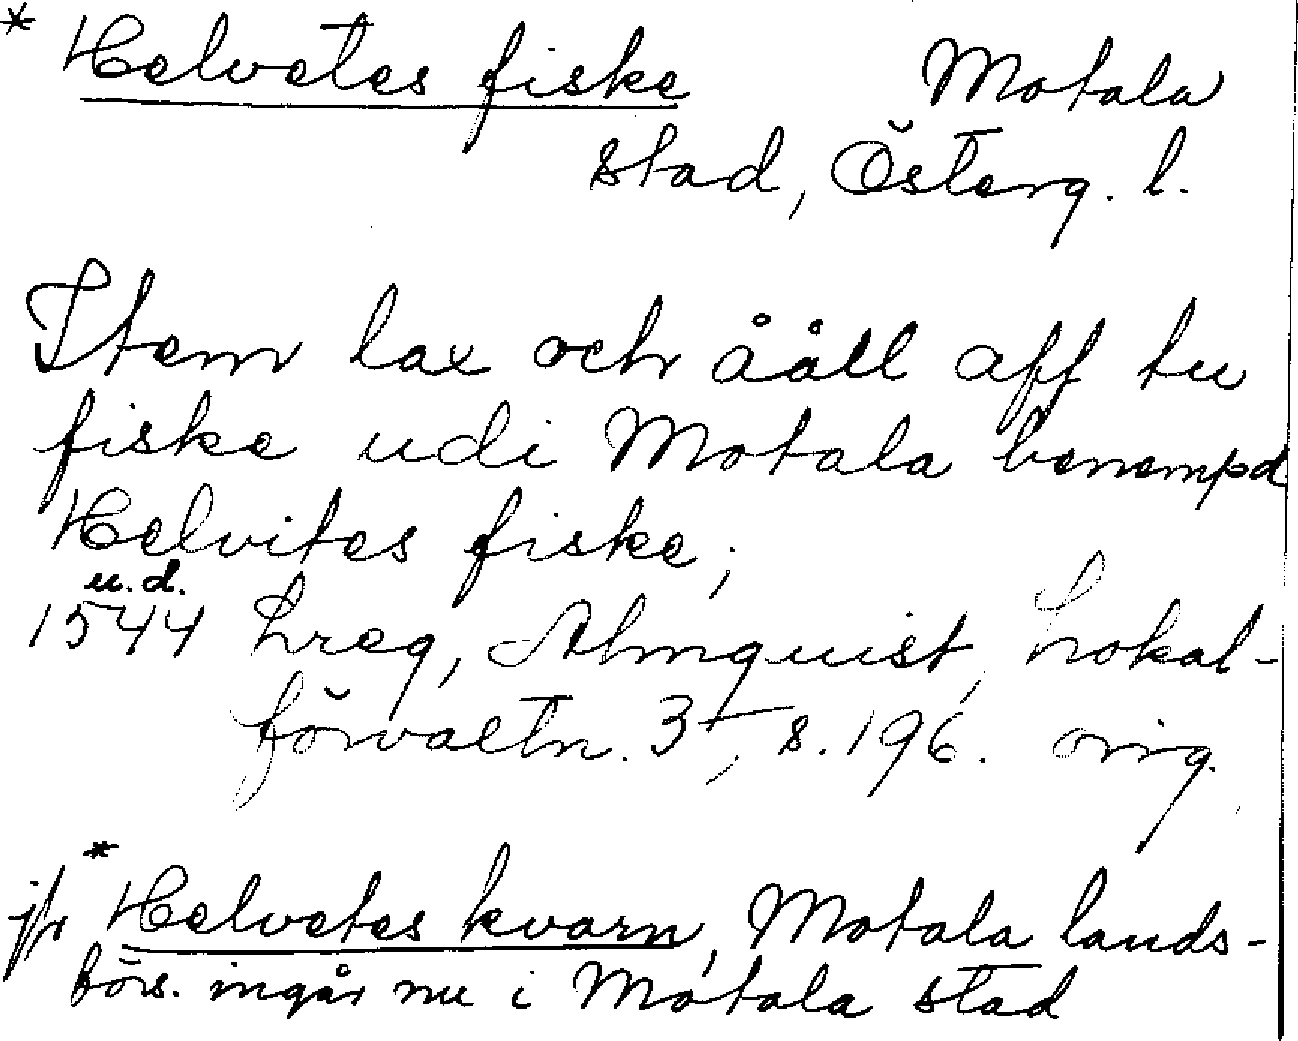 * Helvetes fiske Motala
stad, Österg. l.
Item lax och ååll aff tu
fiske udi Motala benempd
Helvites fiske;
u.d.
1544 Lreg, Almquist, Lokal-
förvaltn. 3, s. 196. orig.
jfr *Helvetes kvarn, Motala lands-
förs. ingår nu i Motala stad